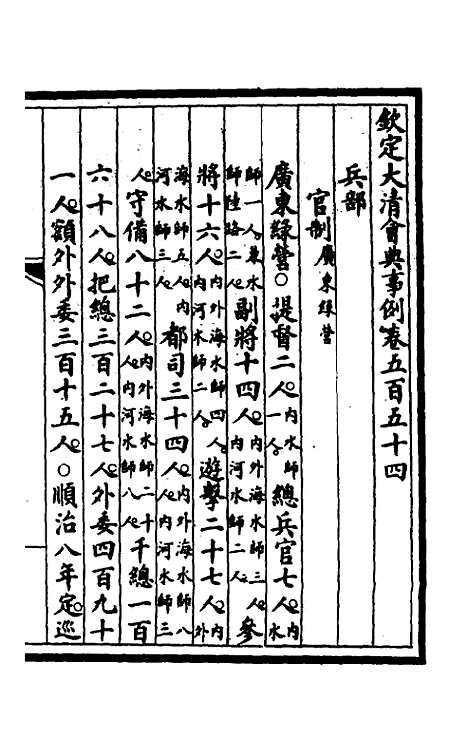 欽定大清會典事例卷五百五十四
兵部
官制廣東綠營
廣東綠營○提督二人內水師一人。總兵官七人內水
師一人。兼水師陸路二人。副將十四人內外海水師三人。內河水師二人。參
將十六人內外海水師四人。內河水師二人。遊擊二十七人內外
海水師五人。內河水師三人。都司三十四人內外海水師八人。內河水師三
人。守備八十二人內外海水師二十人。內河水師八人。千總一百
六十八人。把總三百二十七人。外委四百九十
一人。額外外委三百十五人。○順治八年定。巡